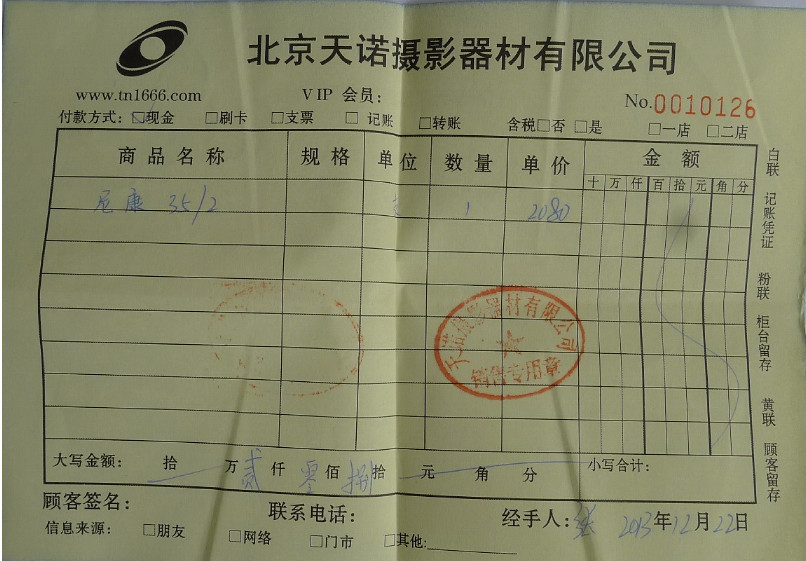 北京天诺摄影器材有限公司
www.tn1666.com VIP 会员: No.0010126
付款方式: □现金 □刷卡 □支票 □ 记账 □转账 含税□否 □是 □一店 □二店
商品名称 规格 单位 数量 单价 金额
十 万 仟 百 拾 元 角 分
尼康 35/2 1 2080
天诺摄影器材有限公司
销售专用章
大写金额: 拾 万 贰 仟 零 佰 捌 拾 元 角 分 小写合计:
顾客签名: 联系电话: 经手人: 2013年12月22日
信息来源: □朋友 □网络 □门市 □其他:
白联 记账凭证
粉联 柜台留存
黄联 顾客留存